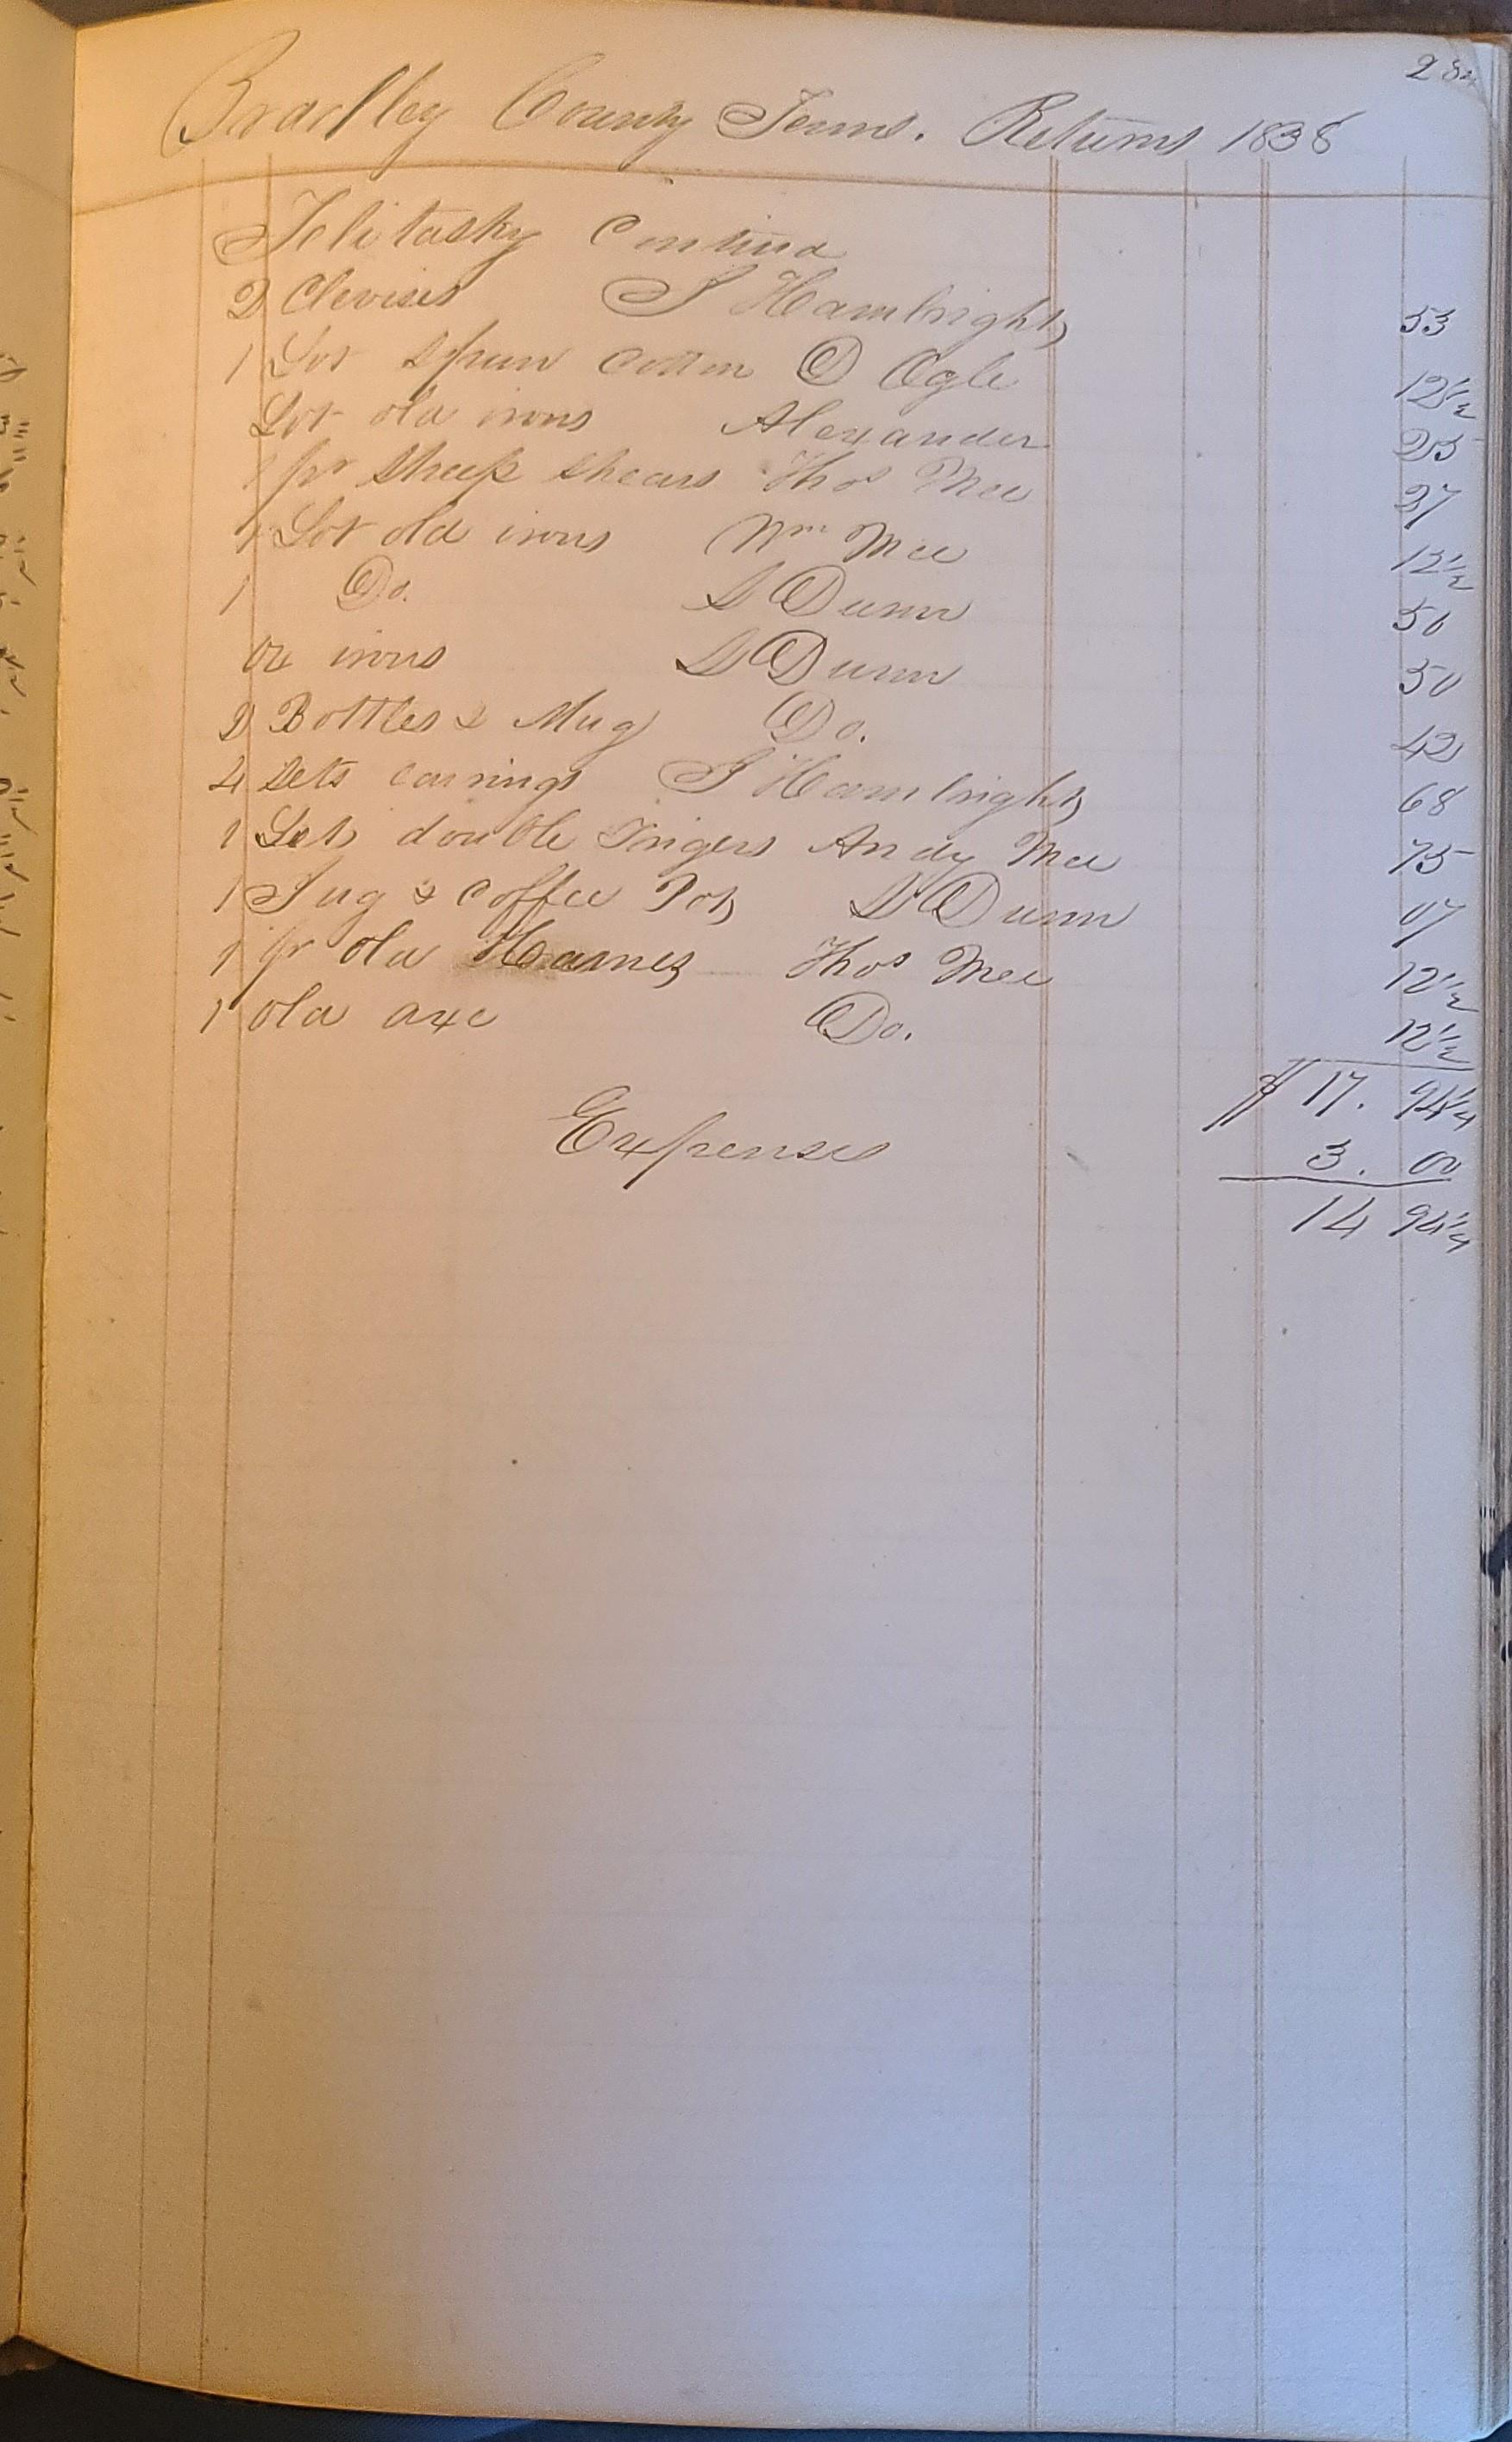 Bradley County Tenn. Returns 1838
Telitasky Continud
2 Clevises J Hambright 53
1 Lot Spun Cotton D Ogle 12½
Lot old irons Alexander 25
1 pr Sheep Shears Thos Mee 27
1 Lot old irons Wm Mee 12½
1 Do. D Dunn 50
ox irons D Dunn 50
2 Bottles & Mug Do. 42
4 Sets earrings J Hambright 68
1 Set double Tingers Andy Mee 75
1 Jug & Coffee Pot D Dunn 07
1 pr old Hames Thos Mee 12½
1 old axe Do. 12½
$ 17. 94¼
Expenses 3. 00
14 94¼